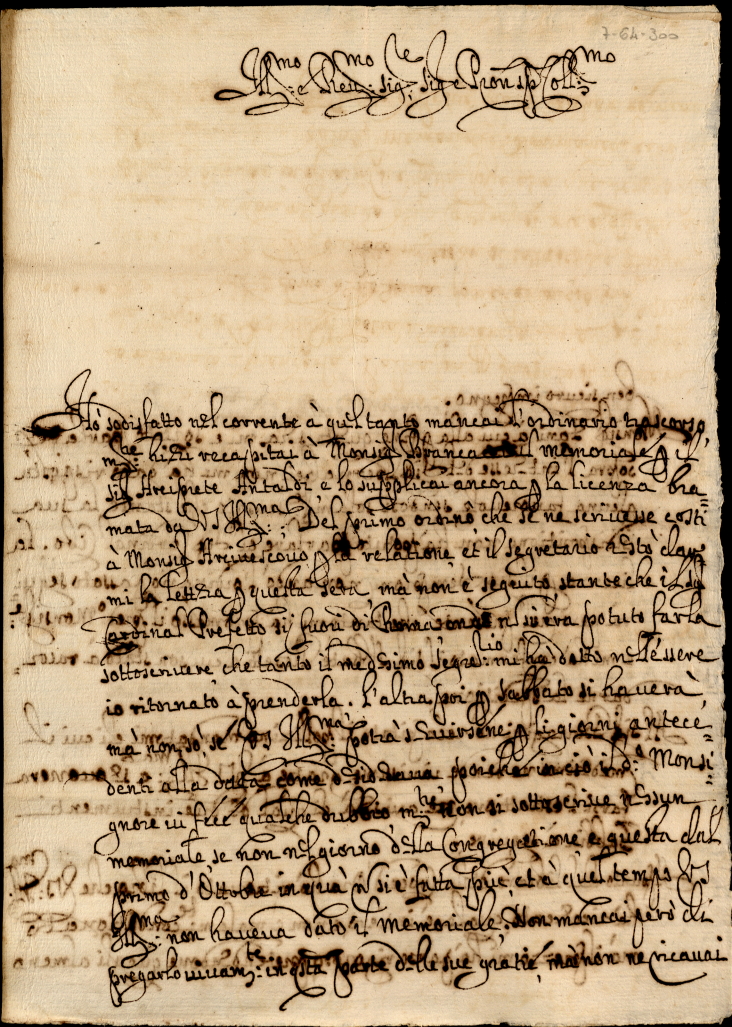 7-64-300
Ill:mo e Rev:mo sig:re sig:re e Pron Coll:mo
Hò sodisfatto nel corrente à quel tanto mancai l'ordinario trascorso,
mentre hieri recapitai à Monsig: Brancacci il memoriale p il
sig: Arciprete Antaldi e lo supplicai ancora p la licenza bra=
mata da VS Ill:ma. Del primo ordinò che se ne scrivesse costì
à Monsig: Arcivescovo p la relatione et il segretario restò dar
mi la lettera p questa sera, mà non è seguito, stante che il sig:
Cardinal Prefetto fuori di Roma n si era potuto farla
sottoscrivere, che tanto il medesimo segret:rio mi hà detto nell'essere
io ritornato à prenderla. L'altra poi p sabbato si haverà
mà non sò, se VS Ill:ma potrà servirsene p li giorni antece=
denti alla data, come desiderava, poiche in ciò il d:o Monsi=
gnore vi fece qualche dubbio non si sottoscrive nessun
memoriale se non nel giorno della Congregatione e questa dal
primo d'Ottobre in quà n si è fatta più, et à quel tempo VS
Ill:ma non haveva dato il memoriale. Non mancai però di
pregarlo vivam:te in q:sta parte delle sue gratie, mà non ne ricavai